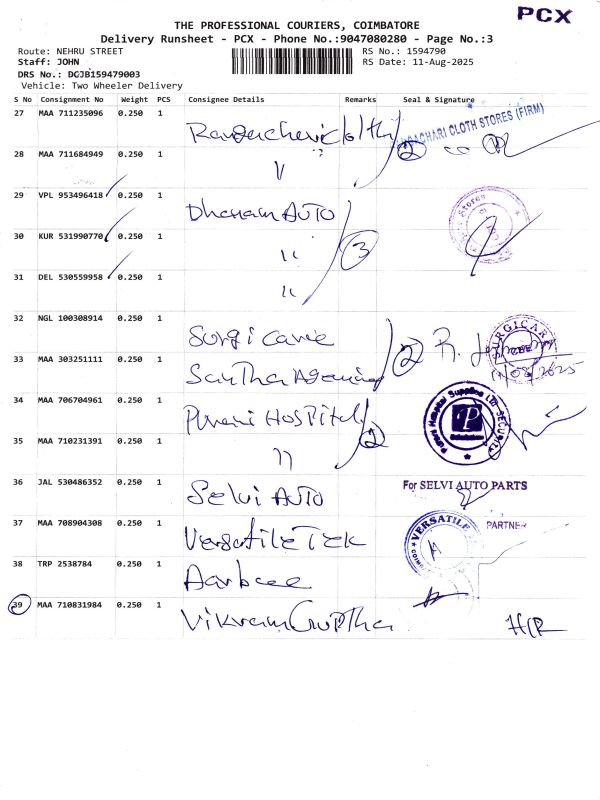 PCX
THE PROFESSIONAL COURIERS, COIMBATORE
Delivery Runsheet - PCX - Phone No.:9047080280 - Page No.:3
Route: NEHRU STREET
RS No.: 1594790
Staff: JOHN
RS Date: 11-Aug-2025
DRS No.: DCJB159479003
Vehicle: Two Wheeler Delivery
S No Consignment No Weight PCS Consignee Details Remarks Seal & Signature
27 MAA 711235096 0.250 1 2 CLOTH STORES (FIRM)
28 MAA 711684949 0.250 1 "
29 VPL 953496418 0.250 1 Dhanam AUTO Stores
30 KUR 531990770 0.250 1 " 3
31 DEL 530559958 0.250 1 "
32 NGL 100308914 0.250 1 Surgicare R. SURGICARE
33 MAA 303251111 0.250 1 Santha Agencies 2 11/08/2025
34 MAA 706704961 0.250 1 Purani HOSPital Purani Hospital Supplies SECURITY P
35 MAA 710231391 0.250 1 " 2
36 JAL 530486352 0.250 1 Selvi AUTO For SELVI AUTO PARTS
37 MAA 708904308 0.250 1 Versatile Tek VERSATILE PARTNER
38 TRP 2538784 0.250 1 Aarbcee
39 MAA 710831984 0.250 1 Vikram Guptha